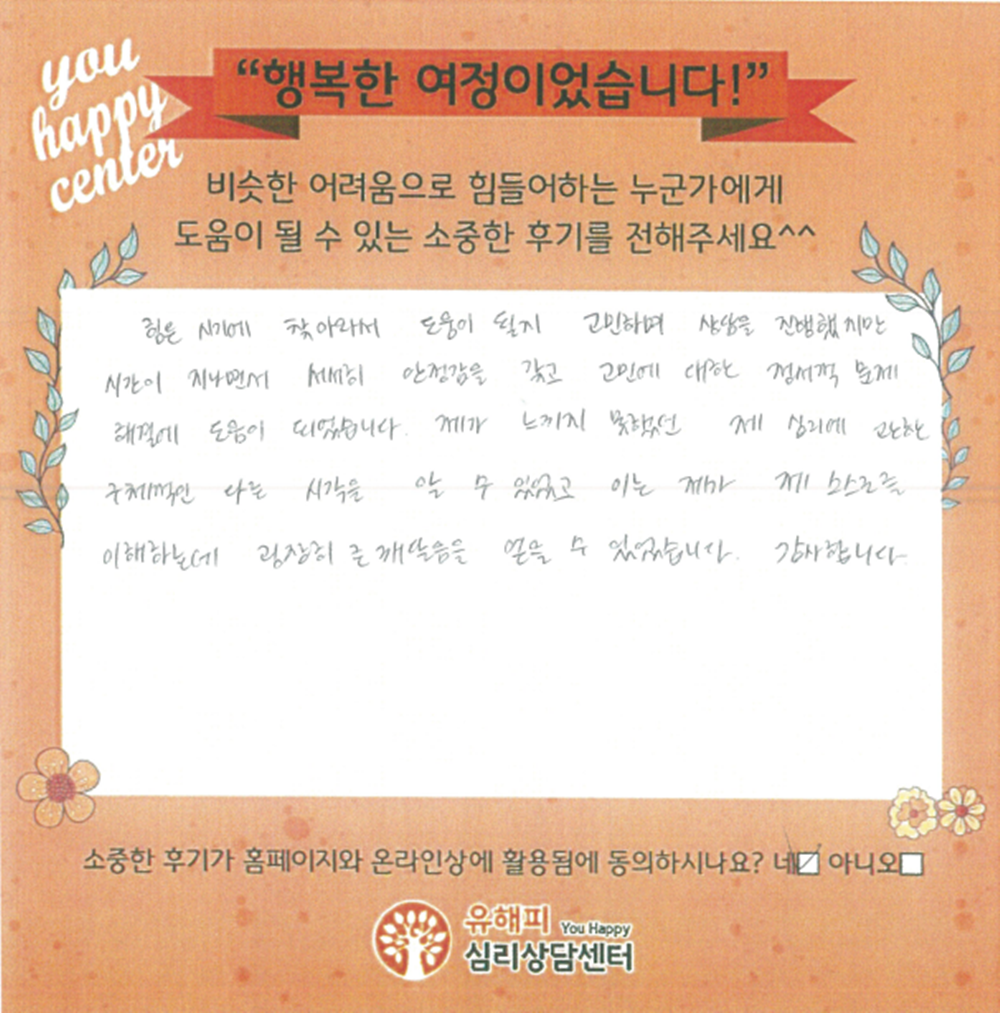 you
happy
center
“행복한 여정이었습니다!”
비슷한 어려움으로 힘들어하는 누군가에게
도움이 될 수 있는 소중한 후기를 전해주세요^^
힘든 시기에 찾아와서 도움이 될지 고민하며 상담을 진행했지만
시간이 지나면서 서서히 안정감을 갖고 고민에 대한 정서적 문제
해결에 도움이 되었습니다. 제가 느끼지 못했던 제 심리에 관한
구체적인 다른 시각을 알 수 있었고 이는 제가 제 스스로를
이해하는데 굉장히 큰 깨달음을 얻을 수 있었습니다. 감사합니다.
소중한 후기가 홈페이지와 온라인상에 활용됨에 동의하시나요? 네 아니오
유해피 You Happy
심리상담센터